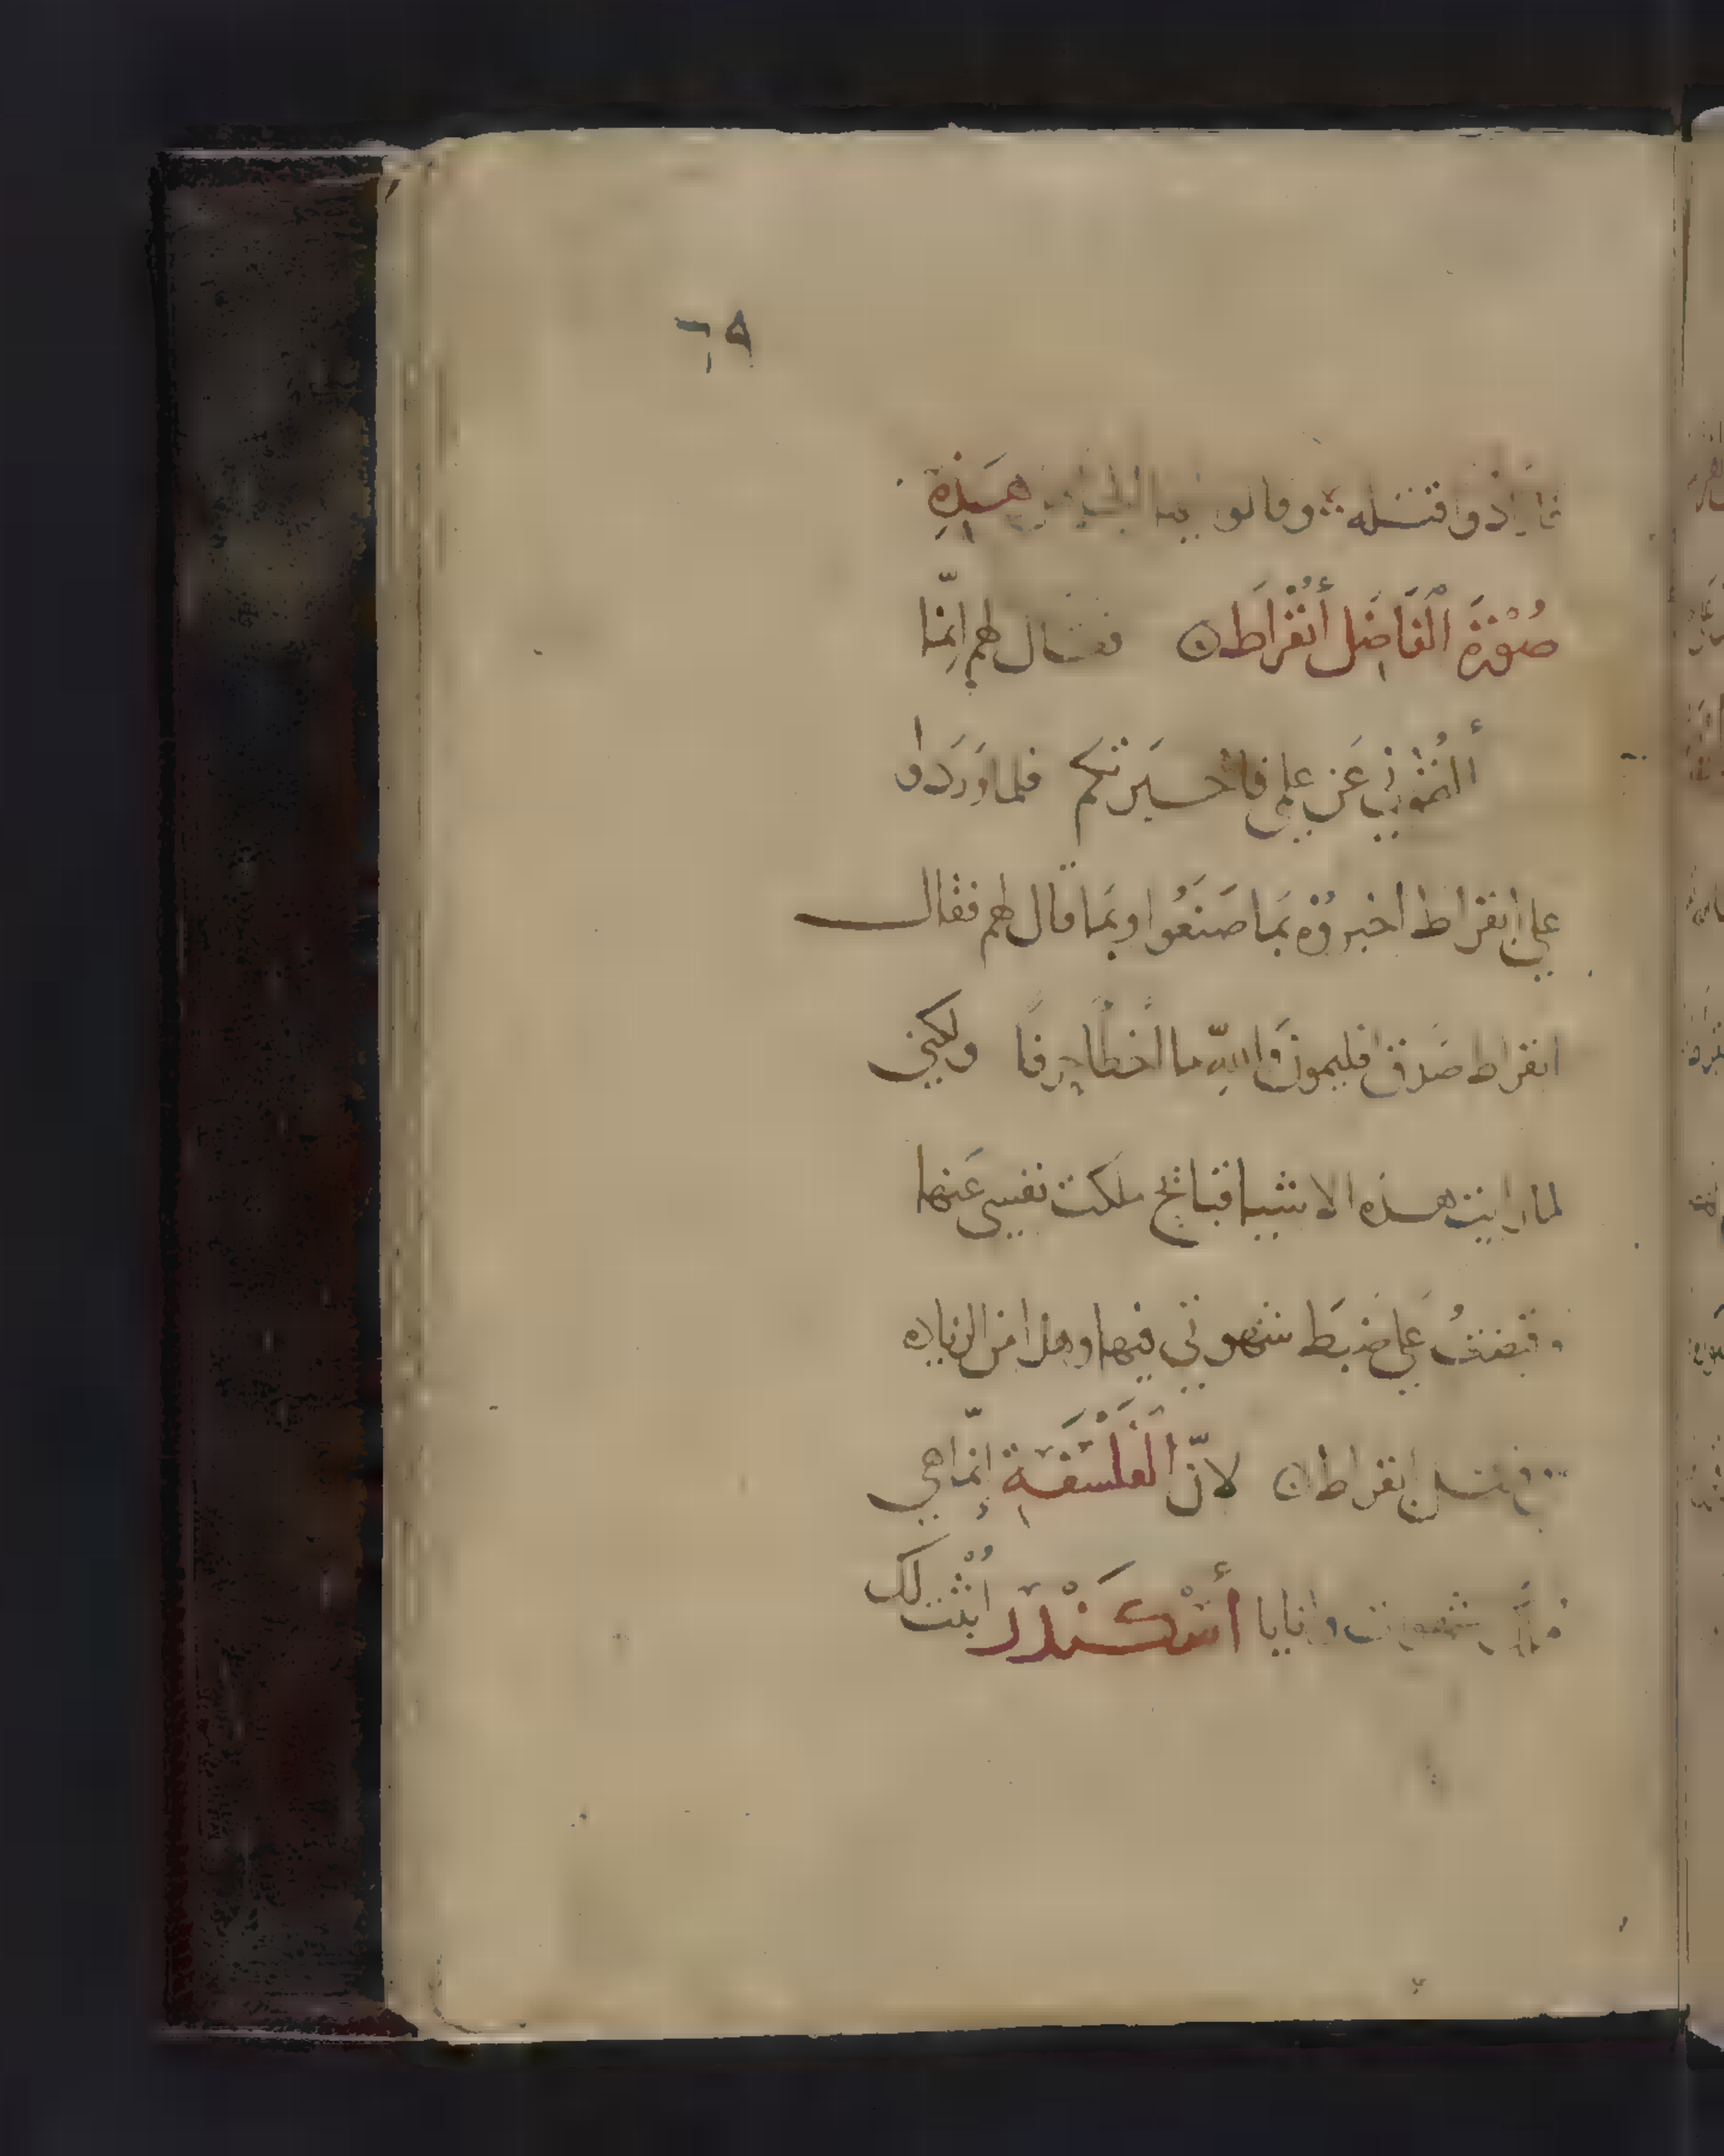 ٦٩
فارادوا قتله وقالوا هذه
صُوْرَةَ الْفَاضِل أبُقْراطَ فقال لهم إنّما
سألتموني عَن علمي فاخبرتكم فلما وَرَدوا
علي ابقراط اخبروْه بمَا صَنَعُوا وبمَا قال لهم فقال
ابقراط صَدق افليمون وَاللهِ ما اخطا حرفًا ولكني
لما رايت هذه الاشيا قبائح ملكت نفسي عَنها
عَلي ضبَط شهوتي فيها وهذا من الزياده
ابقراط لانّ الفَلْسَفةِ إنّما هي
شهوات وانا يا أسْكَنْدَر ابُيّنت لك